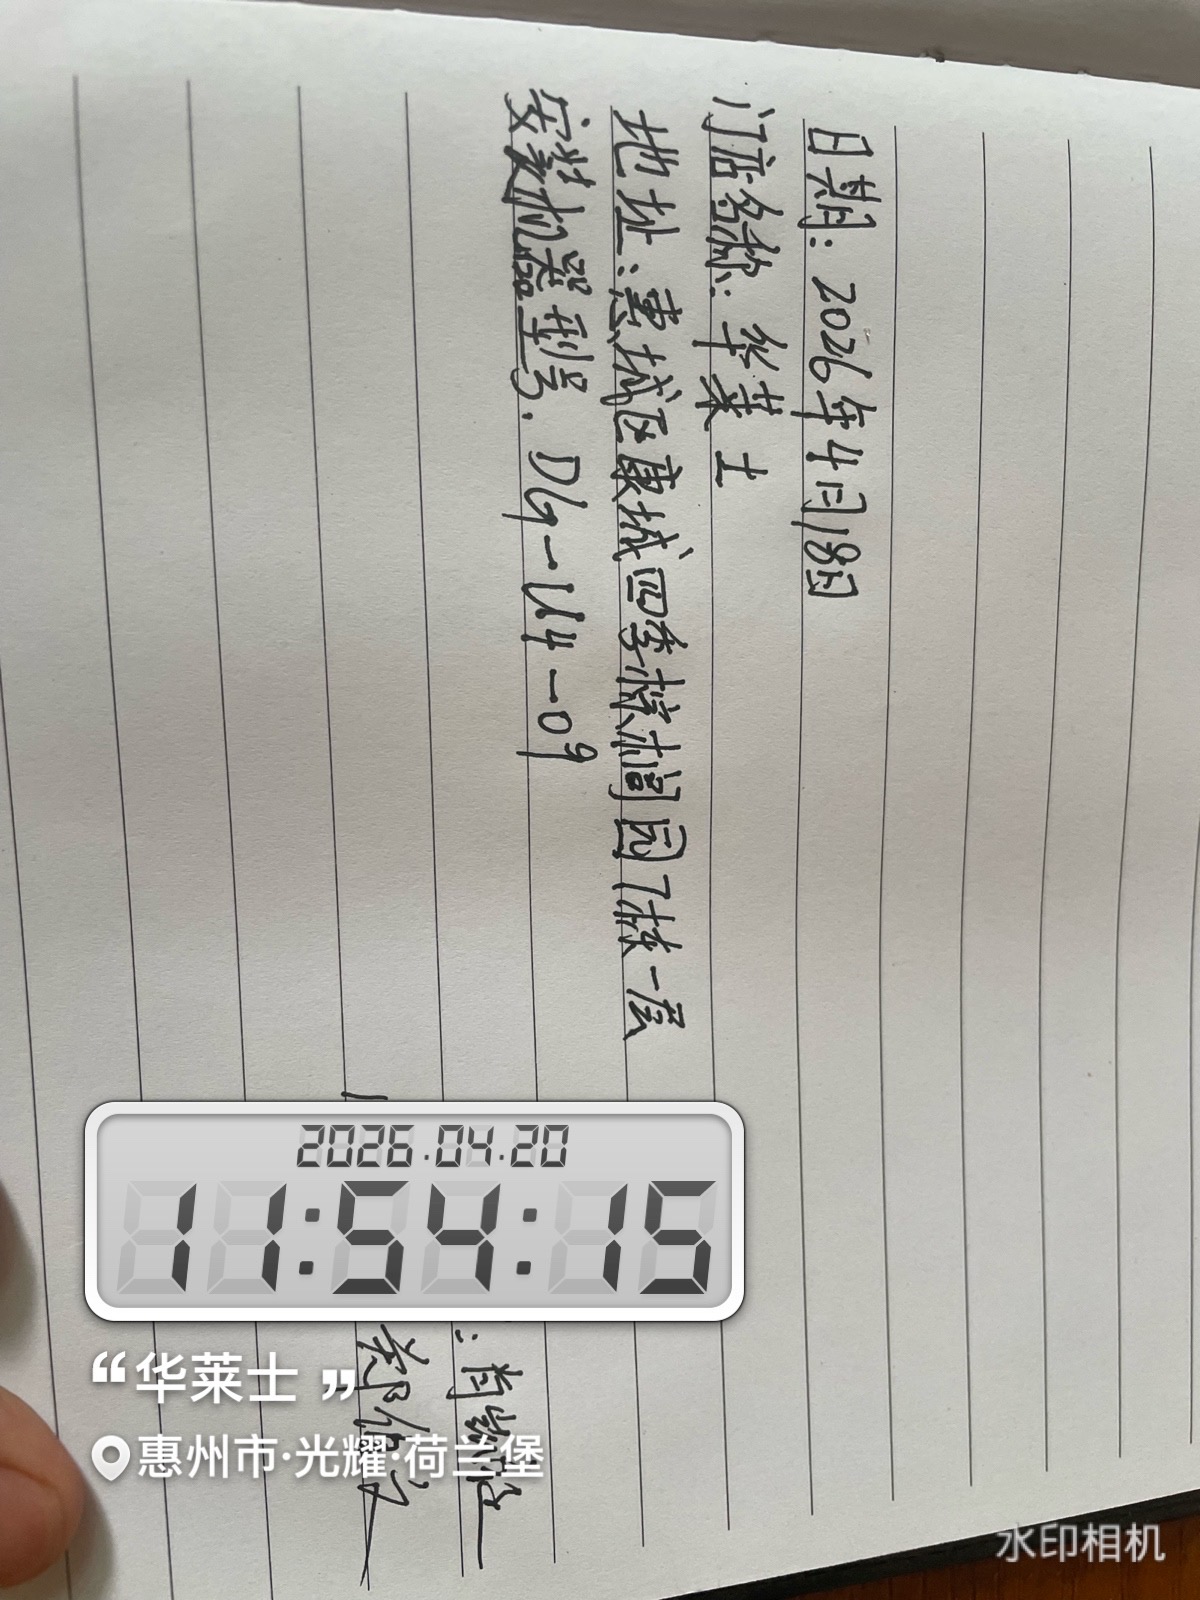 日期：2026年4月18日
门店名称：华莱士
地址：惠城区康城四季檬榈园7栋一层
安装机器型号：DG-U4-09
：肖
郑
2026.04.20
11:54:15
“华莱士”
惠州市·光耀·荷兰堡
水印相机